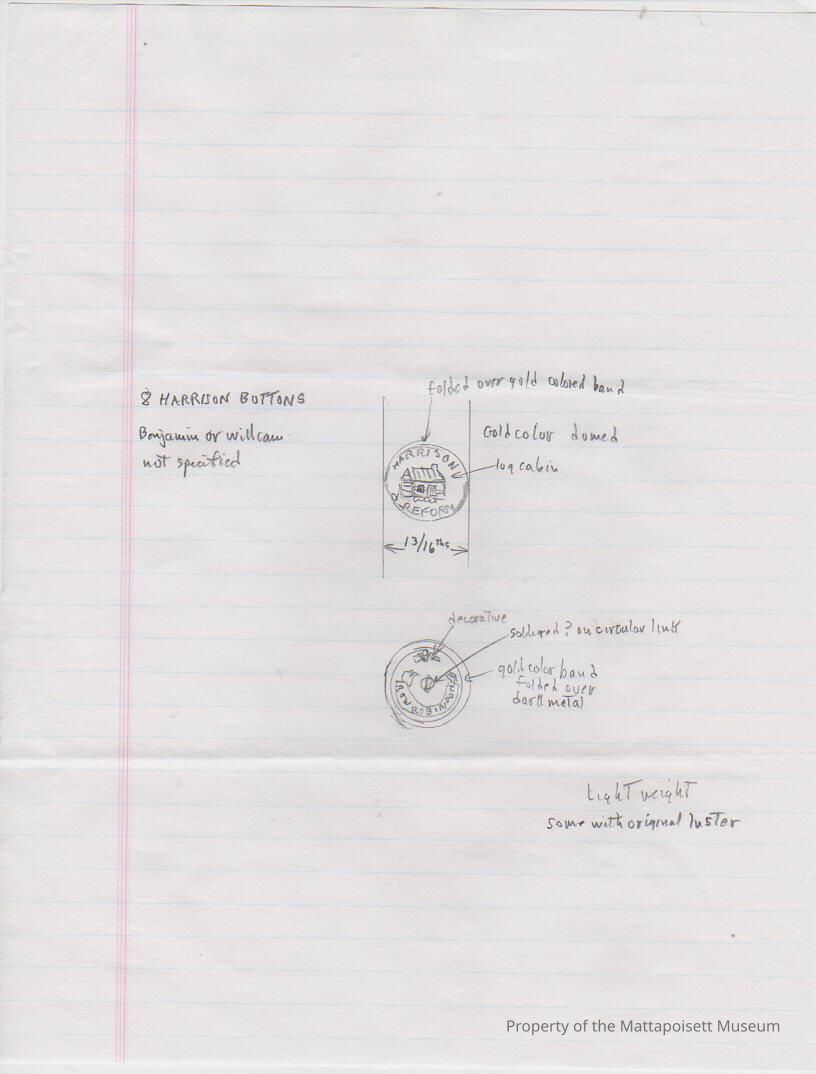 8 HARRISON BUTTONS
Benjamin or William
not specified
folded over gold colored band
Gold color domed
log cabin
HARRISON
& REFORM
13/16ths
decorative
soldered? on circular link
gold color band
folded over
dark metal
R&W ROBINSON
Light weight
some with original luster
Property of the Mattapoisett Museum